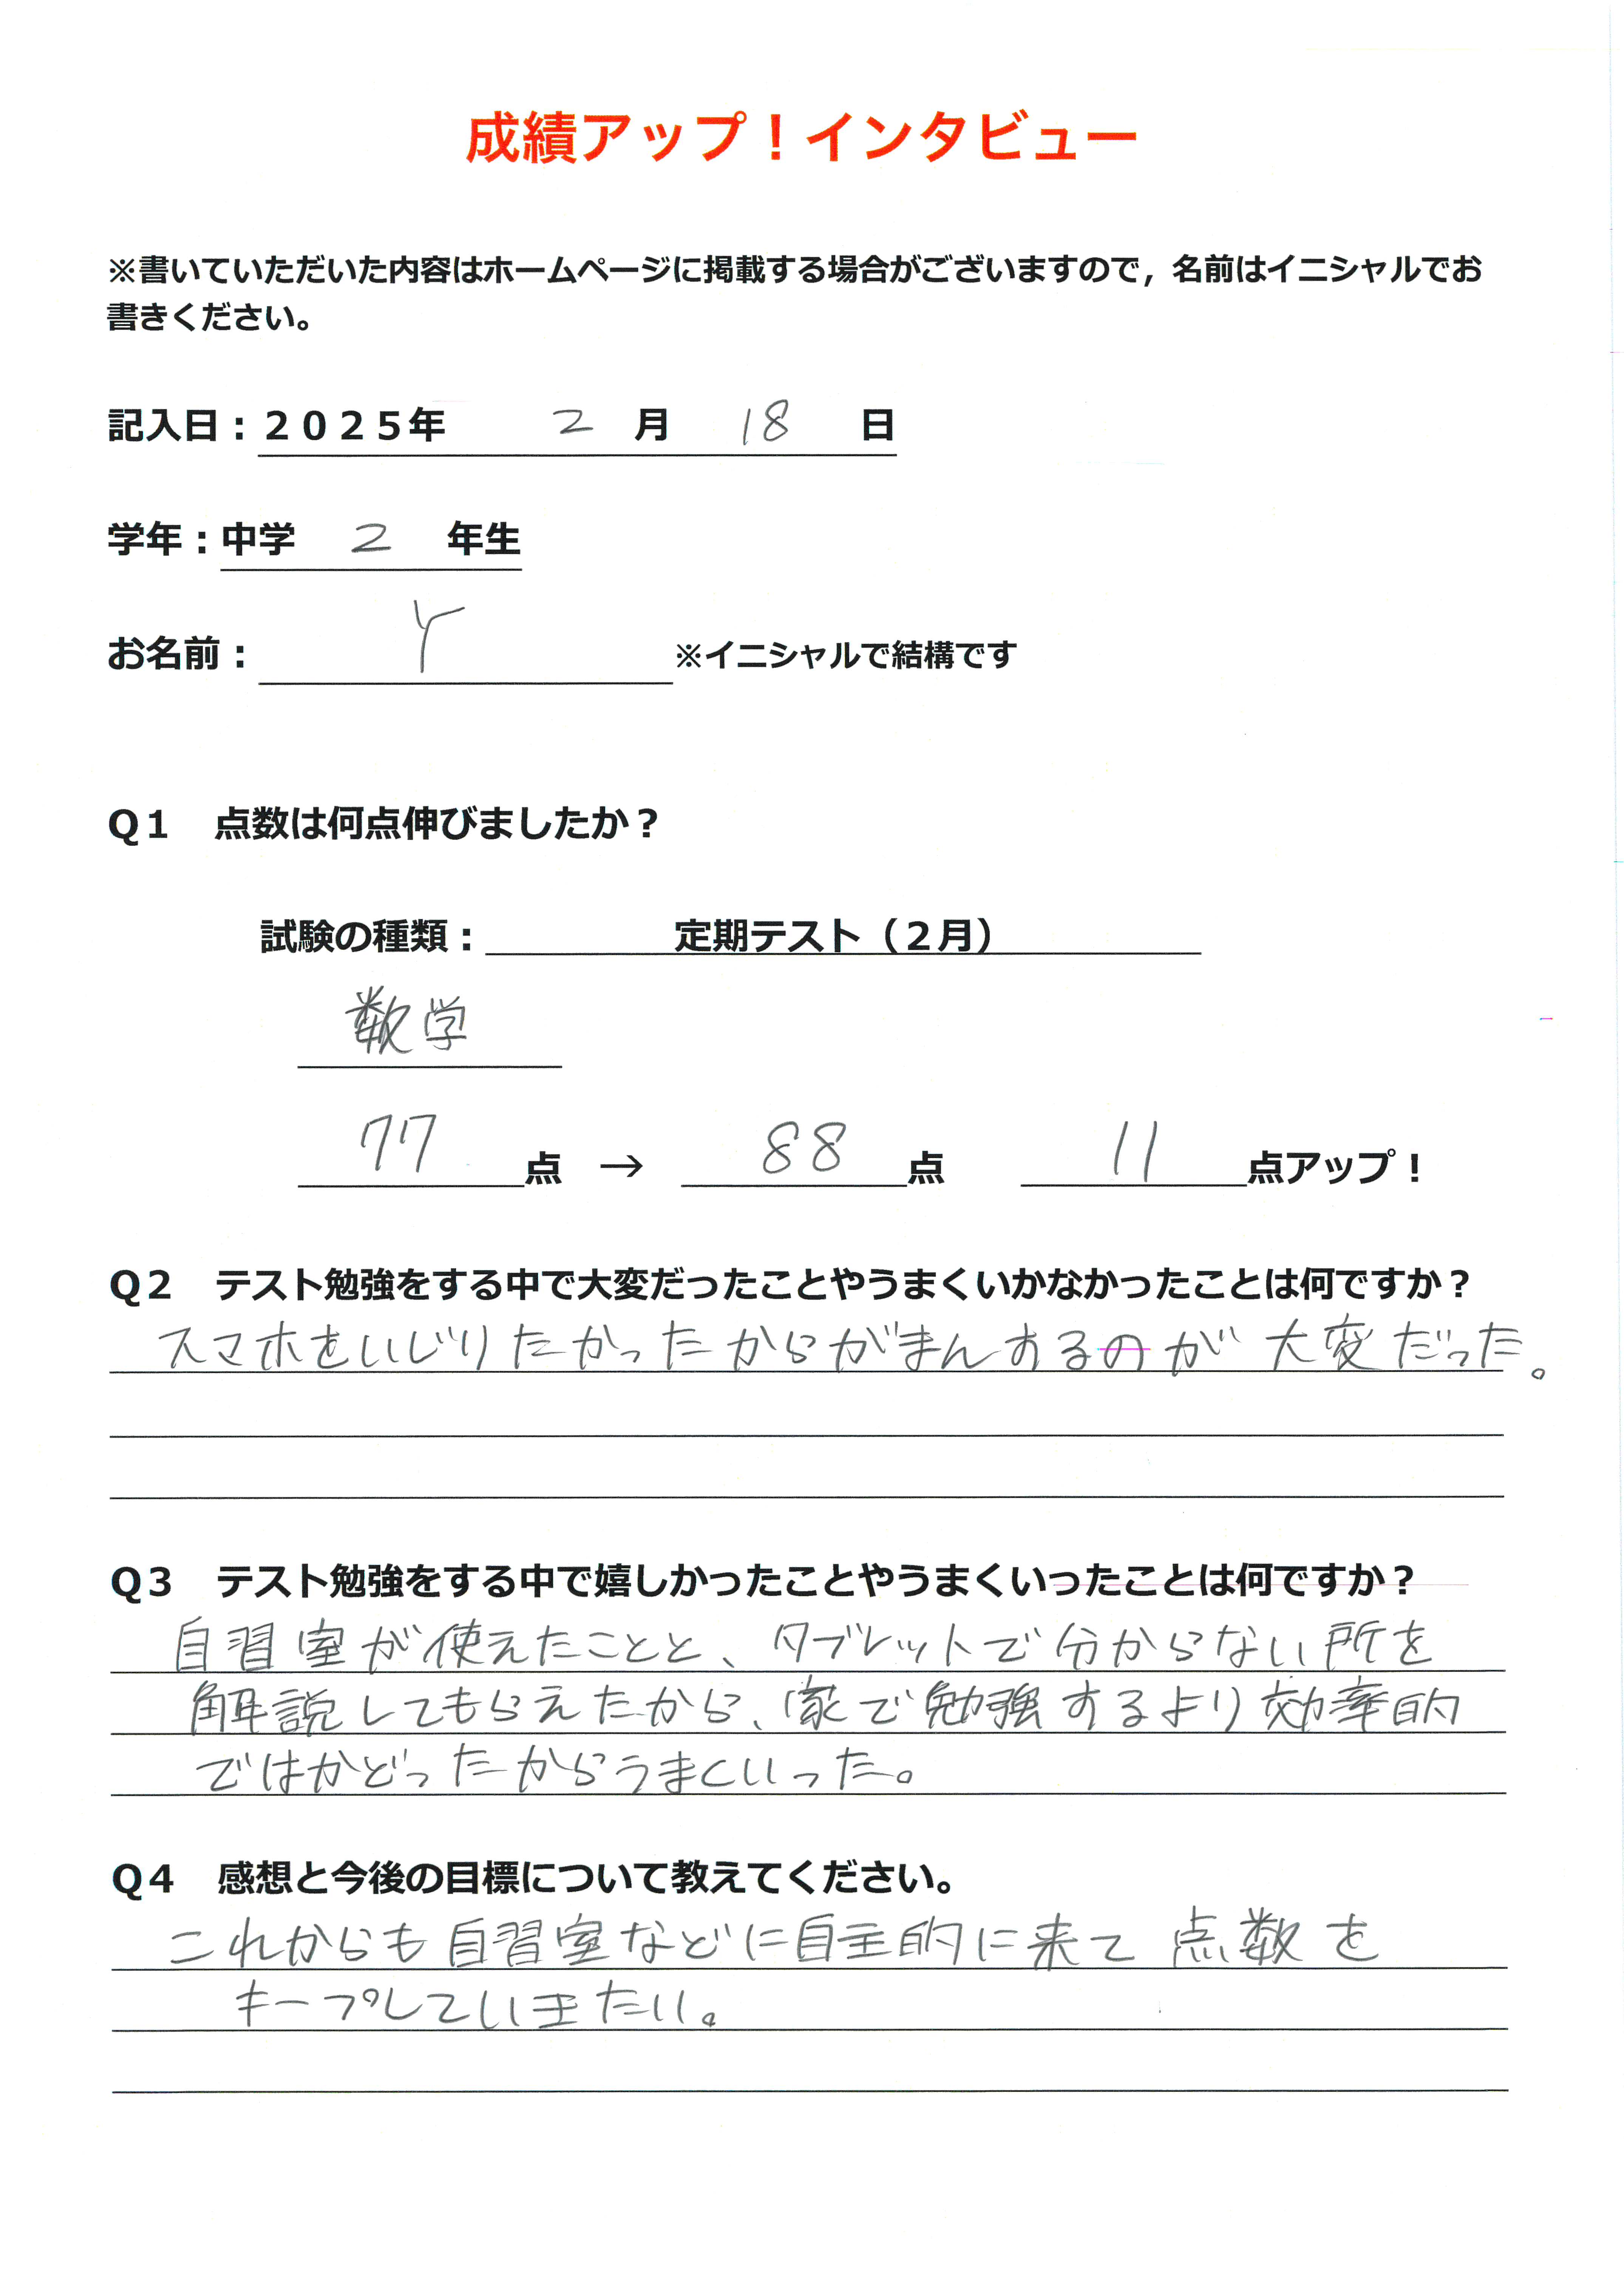 成績アップ！インタビュー
※書いていただいた内容はホームページに掲載する場合がございますので，名前はイニシャルでお
書きください。
記入日：２０２５年 2 月 18 日
学年：中学 2 年生
お名前： Y ※イニシャルで結構です
Ｑ１ 点数は何点伸びましたか？
試験の種類： 定期テスト（２月）
数学
77 点 → 88 点 11 点アップ！
Ｑ２ テスト勉強をする中で大変だったことやうまくいかなかったことは何ですか？
スマホをいじりたかったからがまんするのが大変だった。
Ｑ３ テスト勉強をする中で嬉しかったことやうまくいったことは何ですか？
自習室が使えたことと、タブレットで分からない所を
解説してもらえたから、家で勉強するより効率的
ではかどったからうまくいった。
Ｑ４ 感想と今後の目標について教えてください。
これからも自習室などに自主的に来て点数を
キープしていきたい。